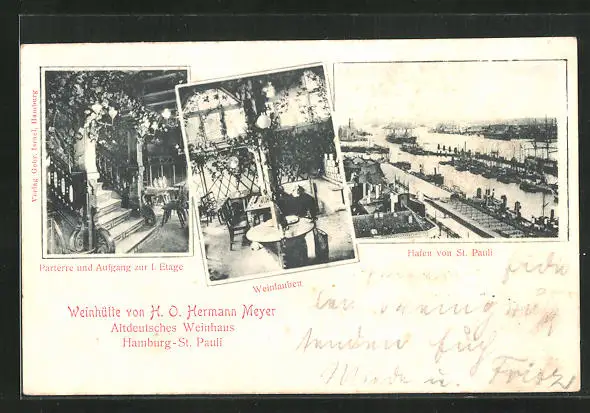 Verlag Gebr. Isrnel, Hamburg
Parterre und Aufgang zur I. Etage
Weinlauben
Hafen von St. Pauli
Weinhütte von H. O. Hermann Meyer
Altdeutsches Weinhaus
Hamburg-St. Pauli
senden Euch
u. Fritz